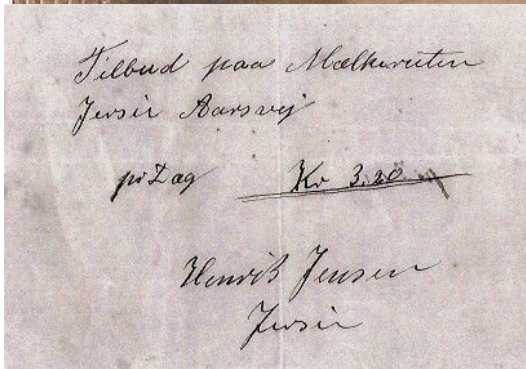 Tilbud paa Mælkeruten
Jersie Aarsvej
pr Dag Kr 3.20
Henrik Jensen
Jersie